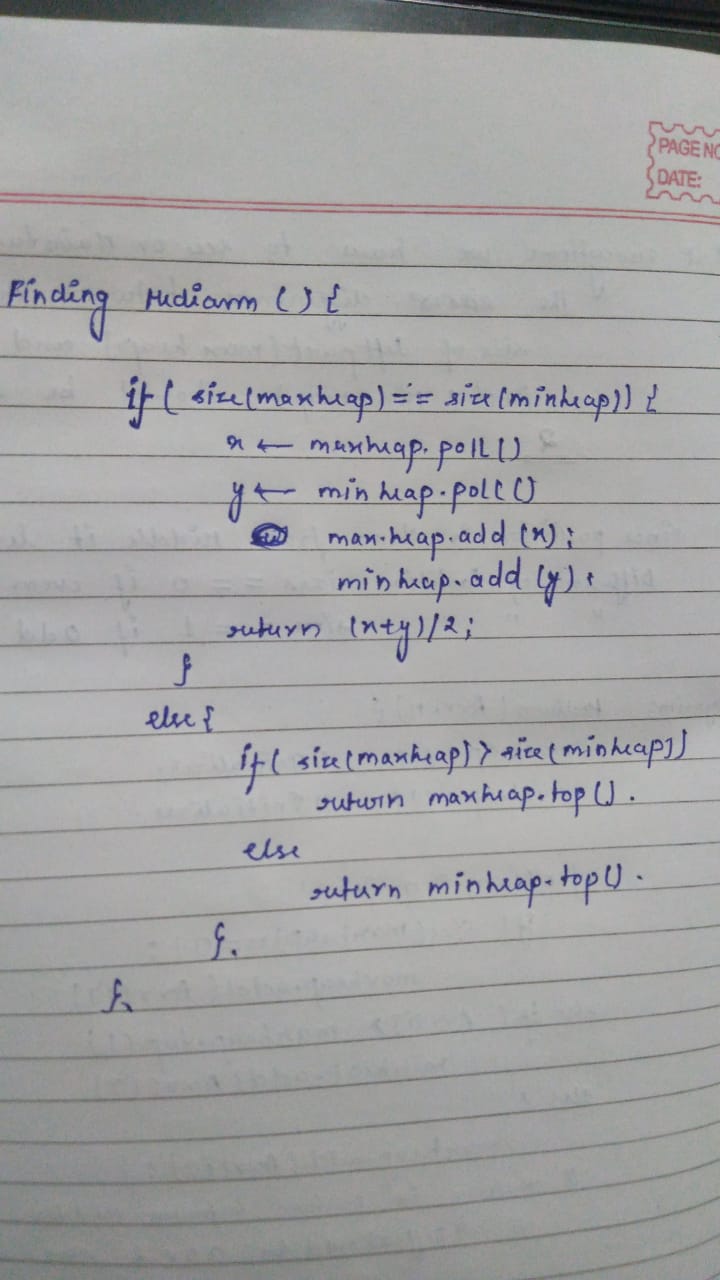 PAGE NO
DATE:
Finding Mediann () {
if ( size(maxheap) == size(minheap)) {
x ← maxheap.poll()
y ← minheap.poll()
max.heap.add (x);
minheap.add (y);
return (x+y)/2;
}
else {
if ( size(maxheap) > size(minheap))
return maxheap.top().
else
return minheap.top().
}.
}.